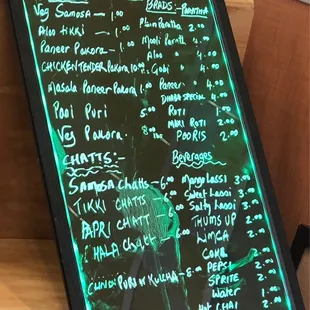 Veg Samosa - 1.00
Aloo Tikki - 1.00
Paneer Pakora - 1.00
CHICKEN TENDER PAKORA
Masala Paneer Pakora
Pani Puri 5.00
Veg Pakora. 8.00
CHATTS:-
SAMOSA Chatts - 6.00
TIKKI CHATTS - 6.00
PAPRI CHATT - 6.00
CHALA Chatt
PURI or KULCHA - 8.00
BRADS:- PARATHA
Plain Paratha 2.00
Mooli Paratha 4.00
Aloo 4.00
Gobi 4.00
Paneer 4.00
DHABA SPECIAL 4.00
ROTI 1.00
MAKI ROTI 2.00
POORIS 2.00
Beverages
Mango Lassi 3.00
Sweet Lassi 3.00
Salty Lassi 3.00
THUMS UP 2.00
LIMCA 2.00
COKE 2.00
PEPSI 2.00
SPRITE 2.00
Water 1.00
Hot CHAI 2.00